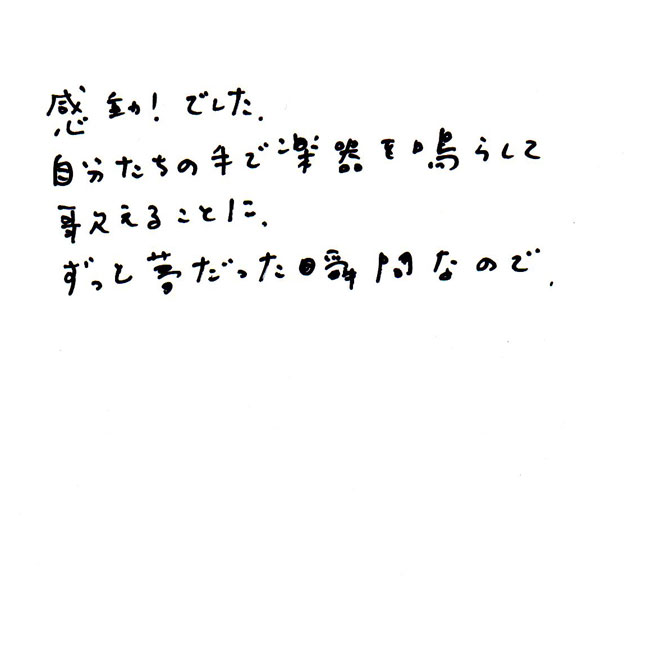 感動！でした.
自分たちの手で楽器を鳴らして
歌えることに.
ずっと夢だった瞬間なので.